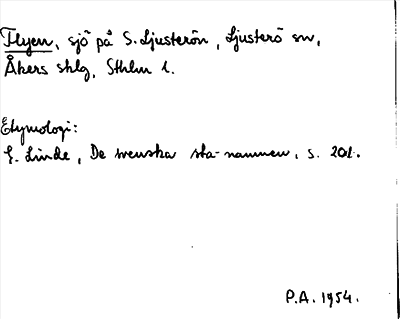 Flyen, sjö på S. Ljusterön, Ljusterö sn,
Åkers sklg, Sthlm l.
Etymologi:
E. Linde, De svenska sta-namnen, s. 201.
P.A. 1954.